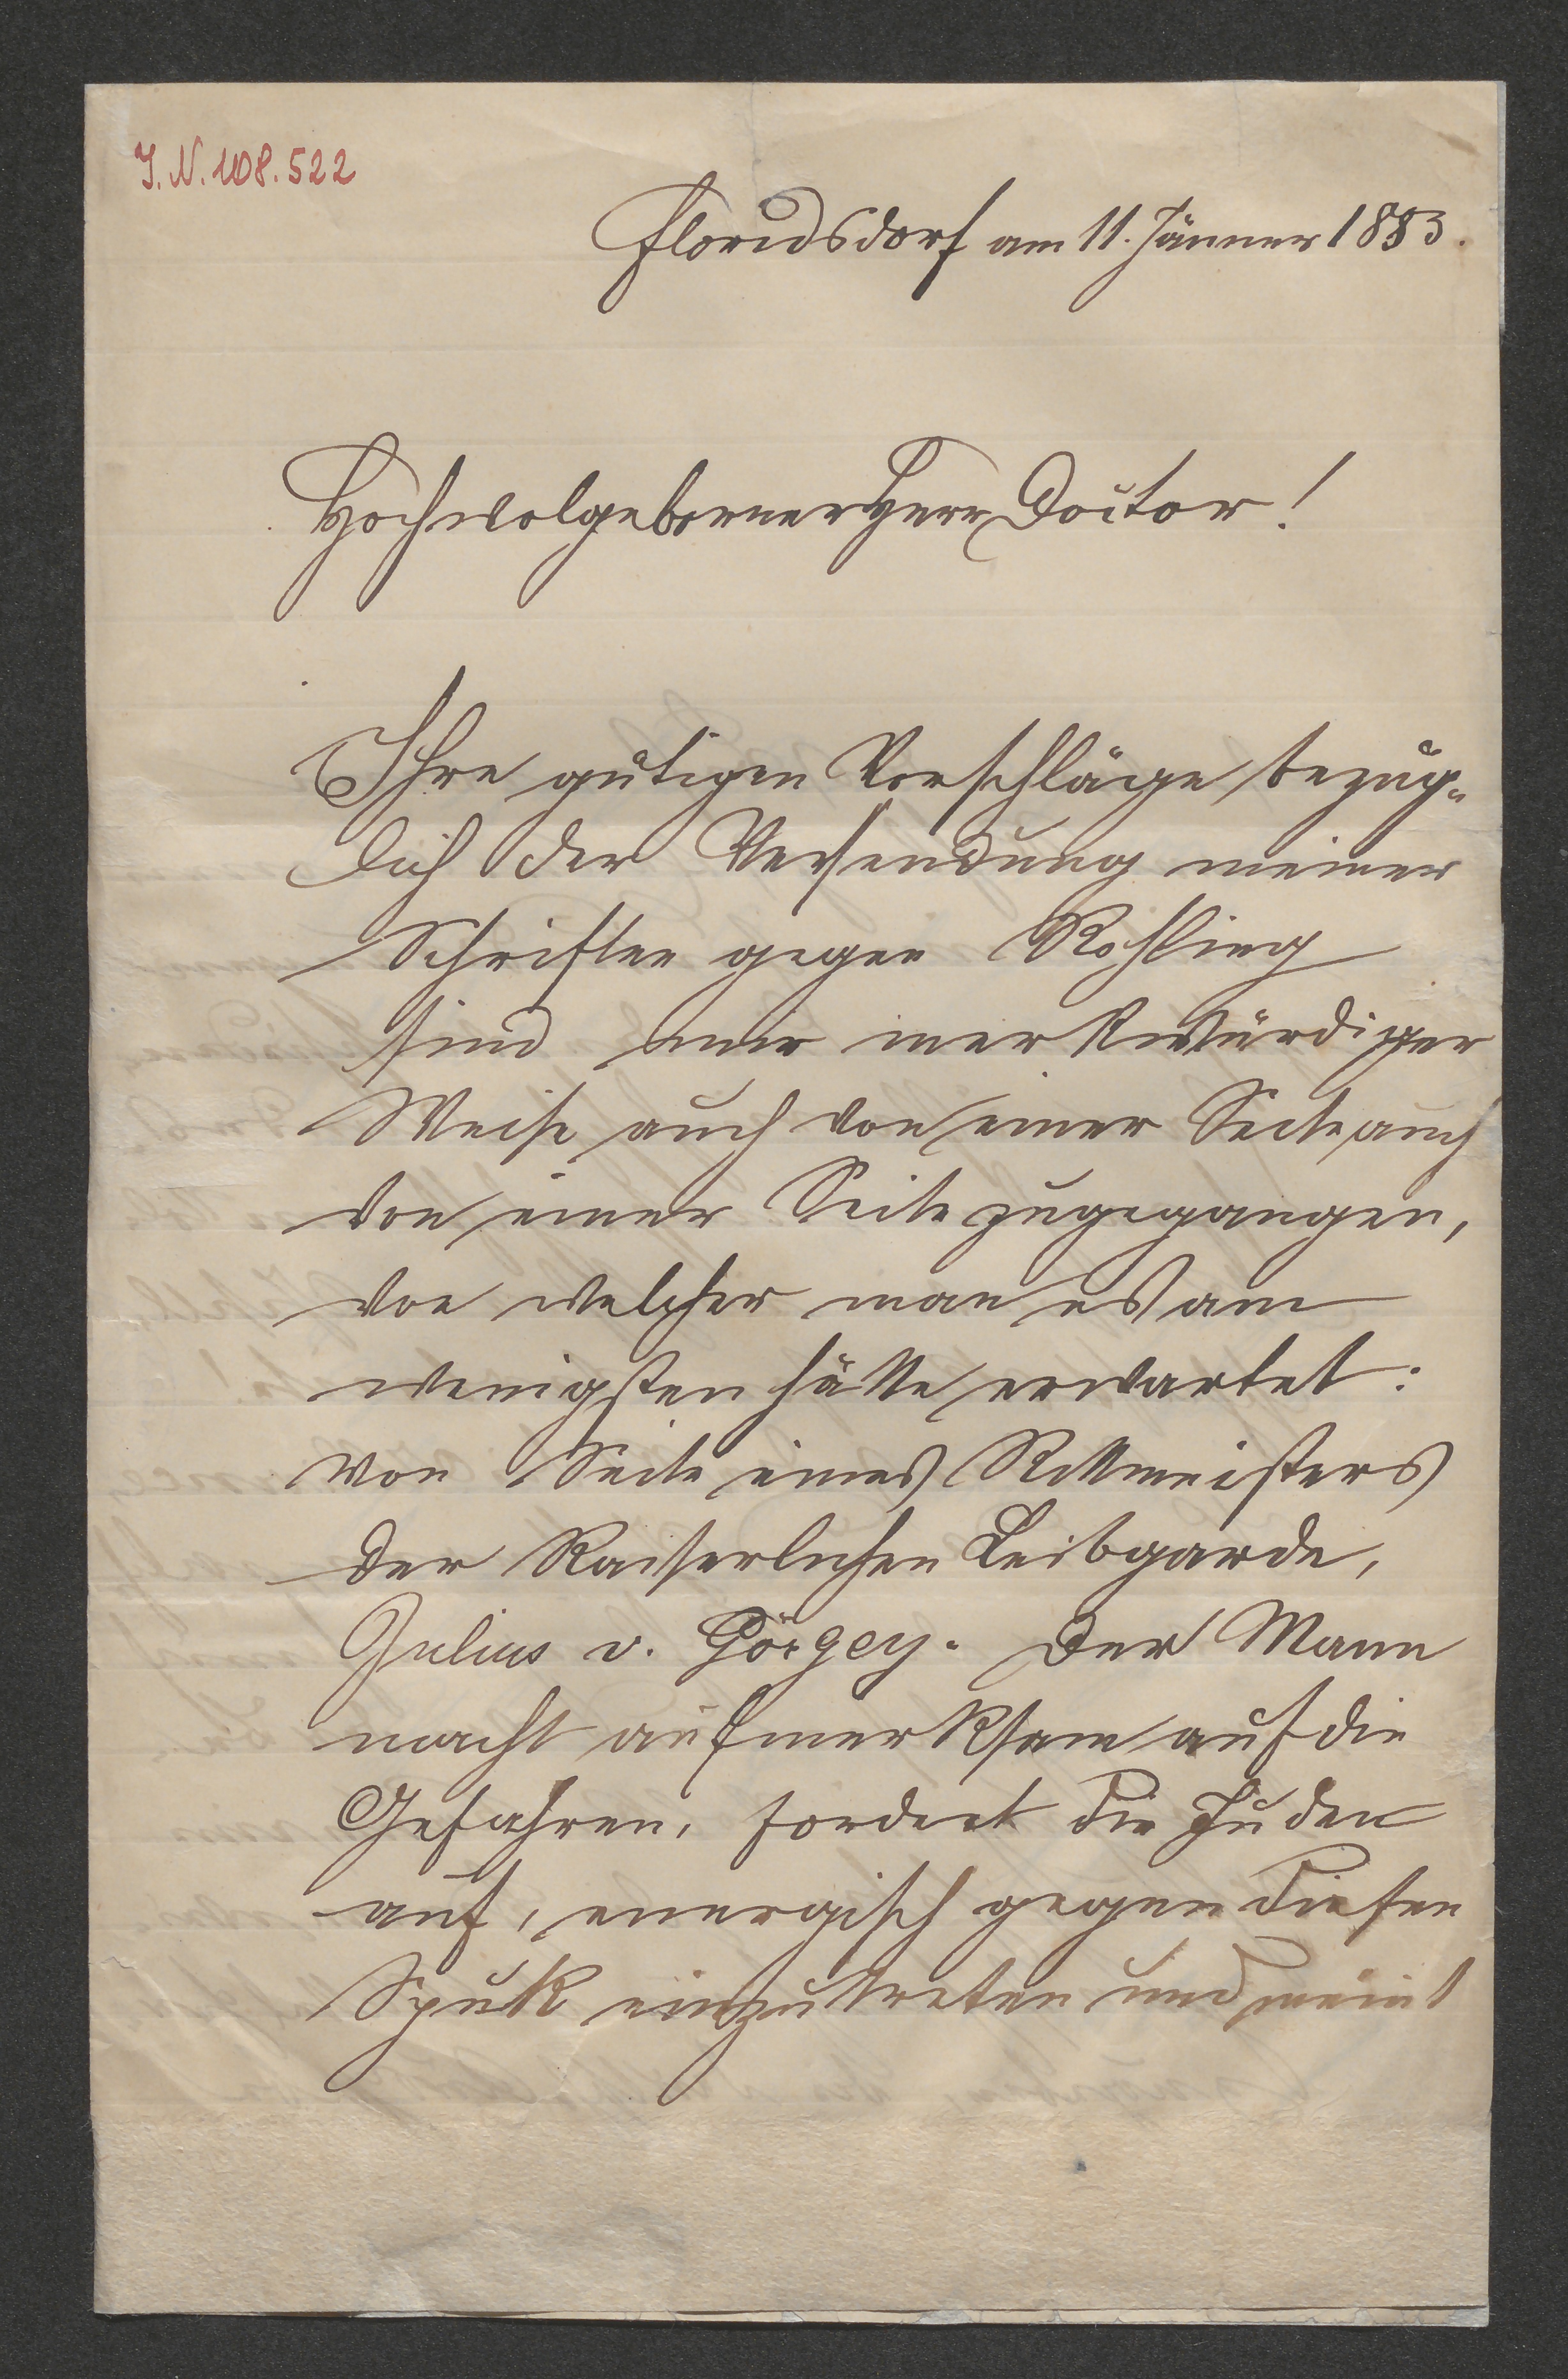 I.N. 108.522
Floridsdorf am 11. Jänner 1883.
Hochwolgeborner Herr Doctor!
Ihre gütigen Vorschläge bezüg-
lich der Versendung meiner
Schriften gegen Rohling
sind mir merkwürdiger
Weise auch von einer Seite auch
von einer Seite zugegangen,
von welcher man es am
wenigsten hätte erwartet:
von Seite eines Rittmeisters
der Kaiserlichen Leibgarde,
Julius v. Görgey. Der Mann
macht aufmerksam auf die
Gefahren, fordert die Juden
auf, energisch gegen diesen
Spuk einzutreten und meint